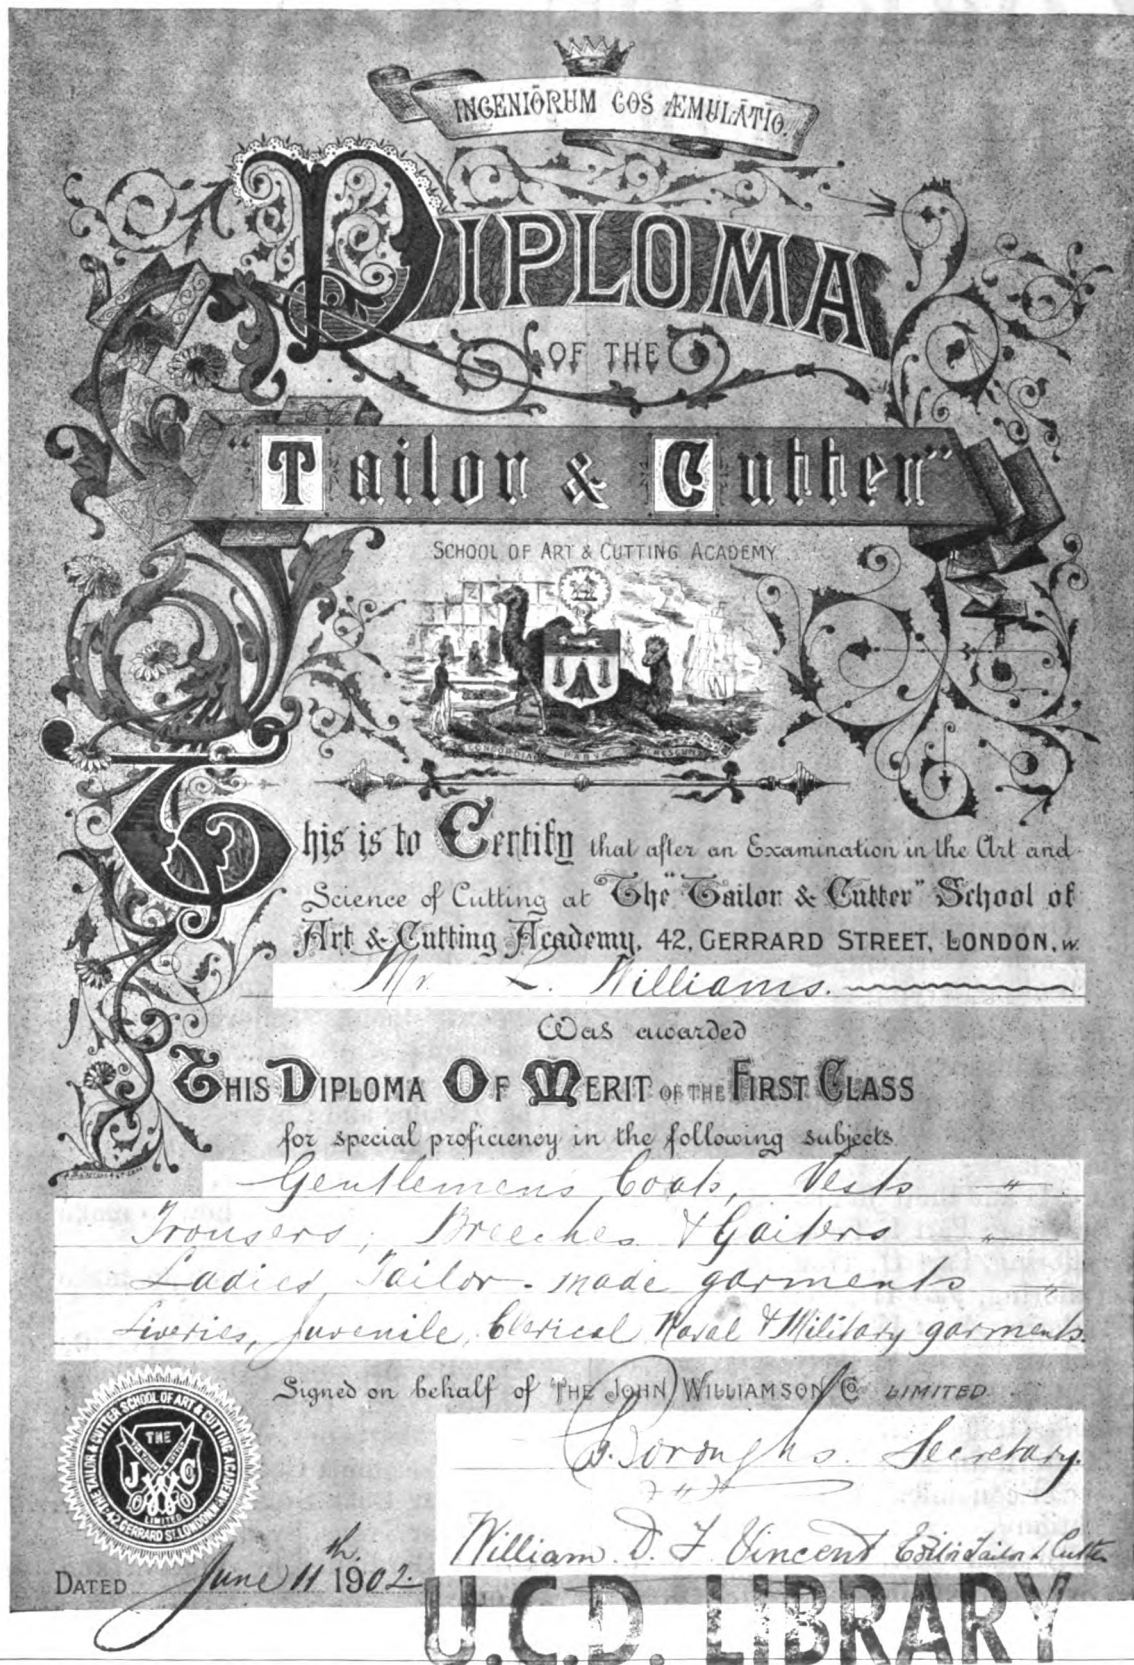 INGENIŌRUM COS ÆMULĀTIO.
DIPLOMA
OF THE
"Tailor & Cutter"
SCHOOL OF ART & CUTTING ACADEMY
CONCORDIA PARVÆ CRESCUNT
This is to Certify that after an Examination in the Art and
Science of Cutting at "The "Tailor & Cutter" School of
Art & Cutting Academy, 42, GERRARD STREET, LONDON, W.
Mr. L. Williams.
Was awarded
THIS DIPLOMA OF MERIT OF THE FIRST CLASS
for special proficiency in the following subjects
Gentlemens Coats, Vests "
Trousers, Breeches & Gaiters "
Ladies Tailor-made garments "
Liveries, Juvenile, Clerical Naval & Military garments.
Signed on behalf of THE JOHN WILLIAMSON Co LIMITED
Boroughs. Secretary.
William. D. F. Vincent Editor Tailor & Cutter
THE TAILOR & CUTTER SCHOOL OF ART & CUTTING ACADEMY
42, GERRARD ST. LONDON W
THE
J C
LIMITED
DATED June 11th. 1902.
U.C.D. LIBRARY